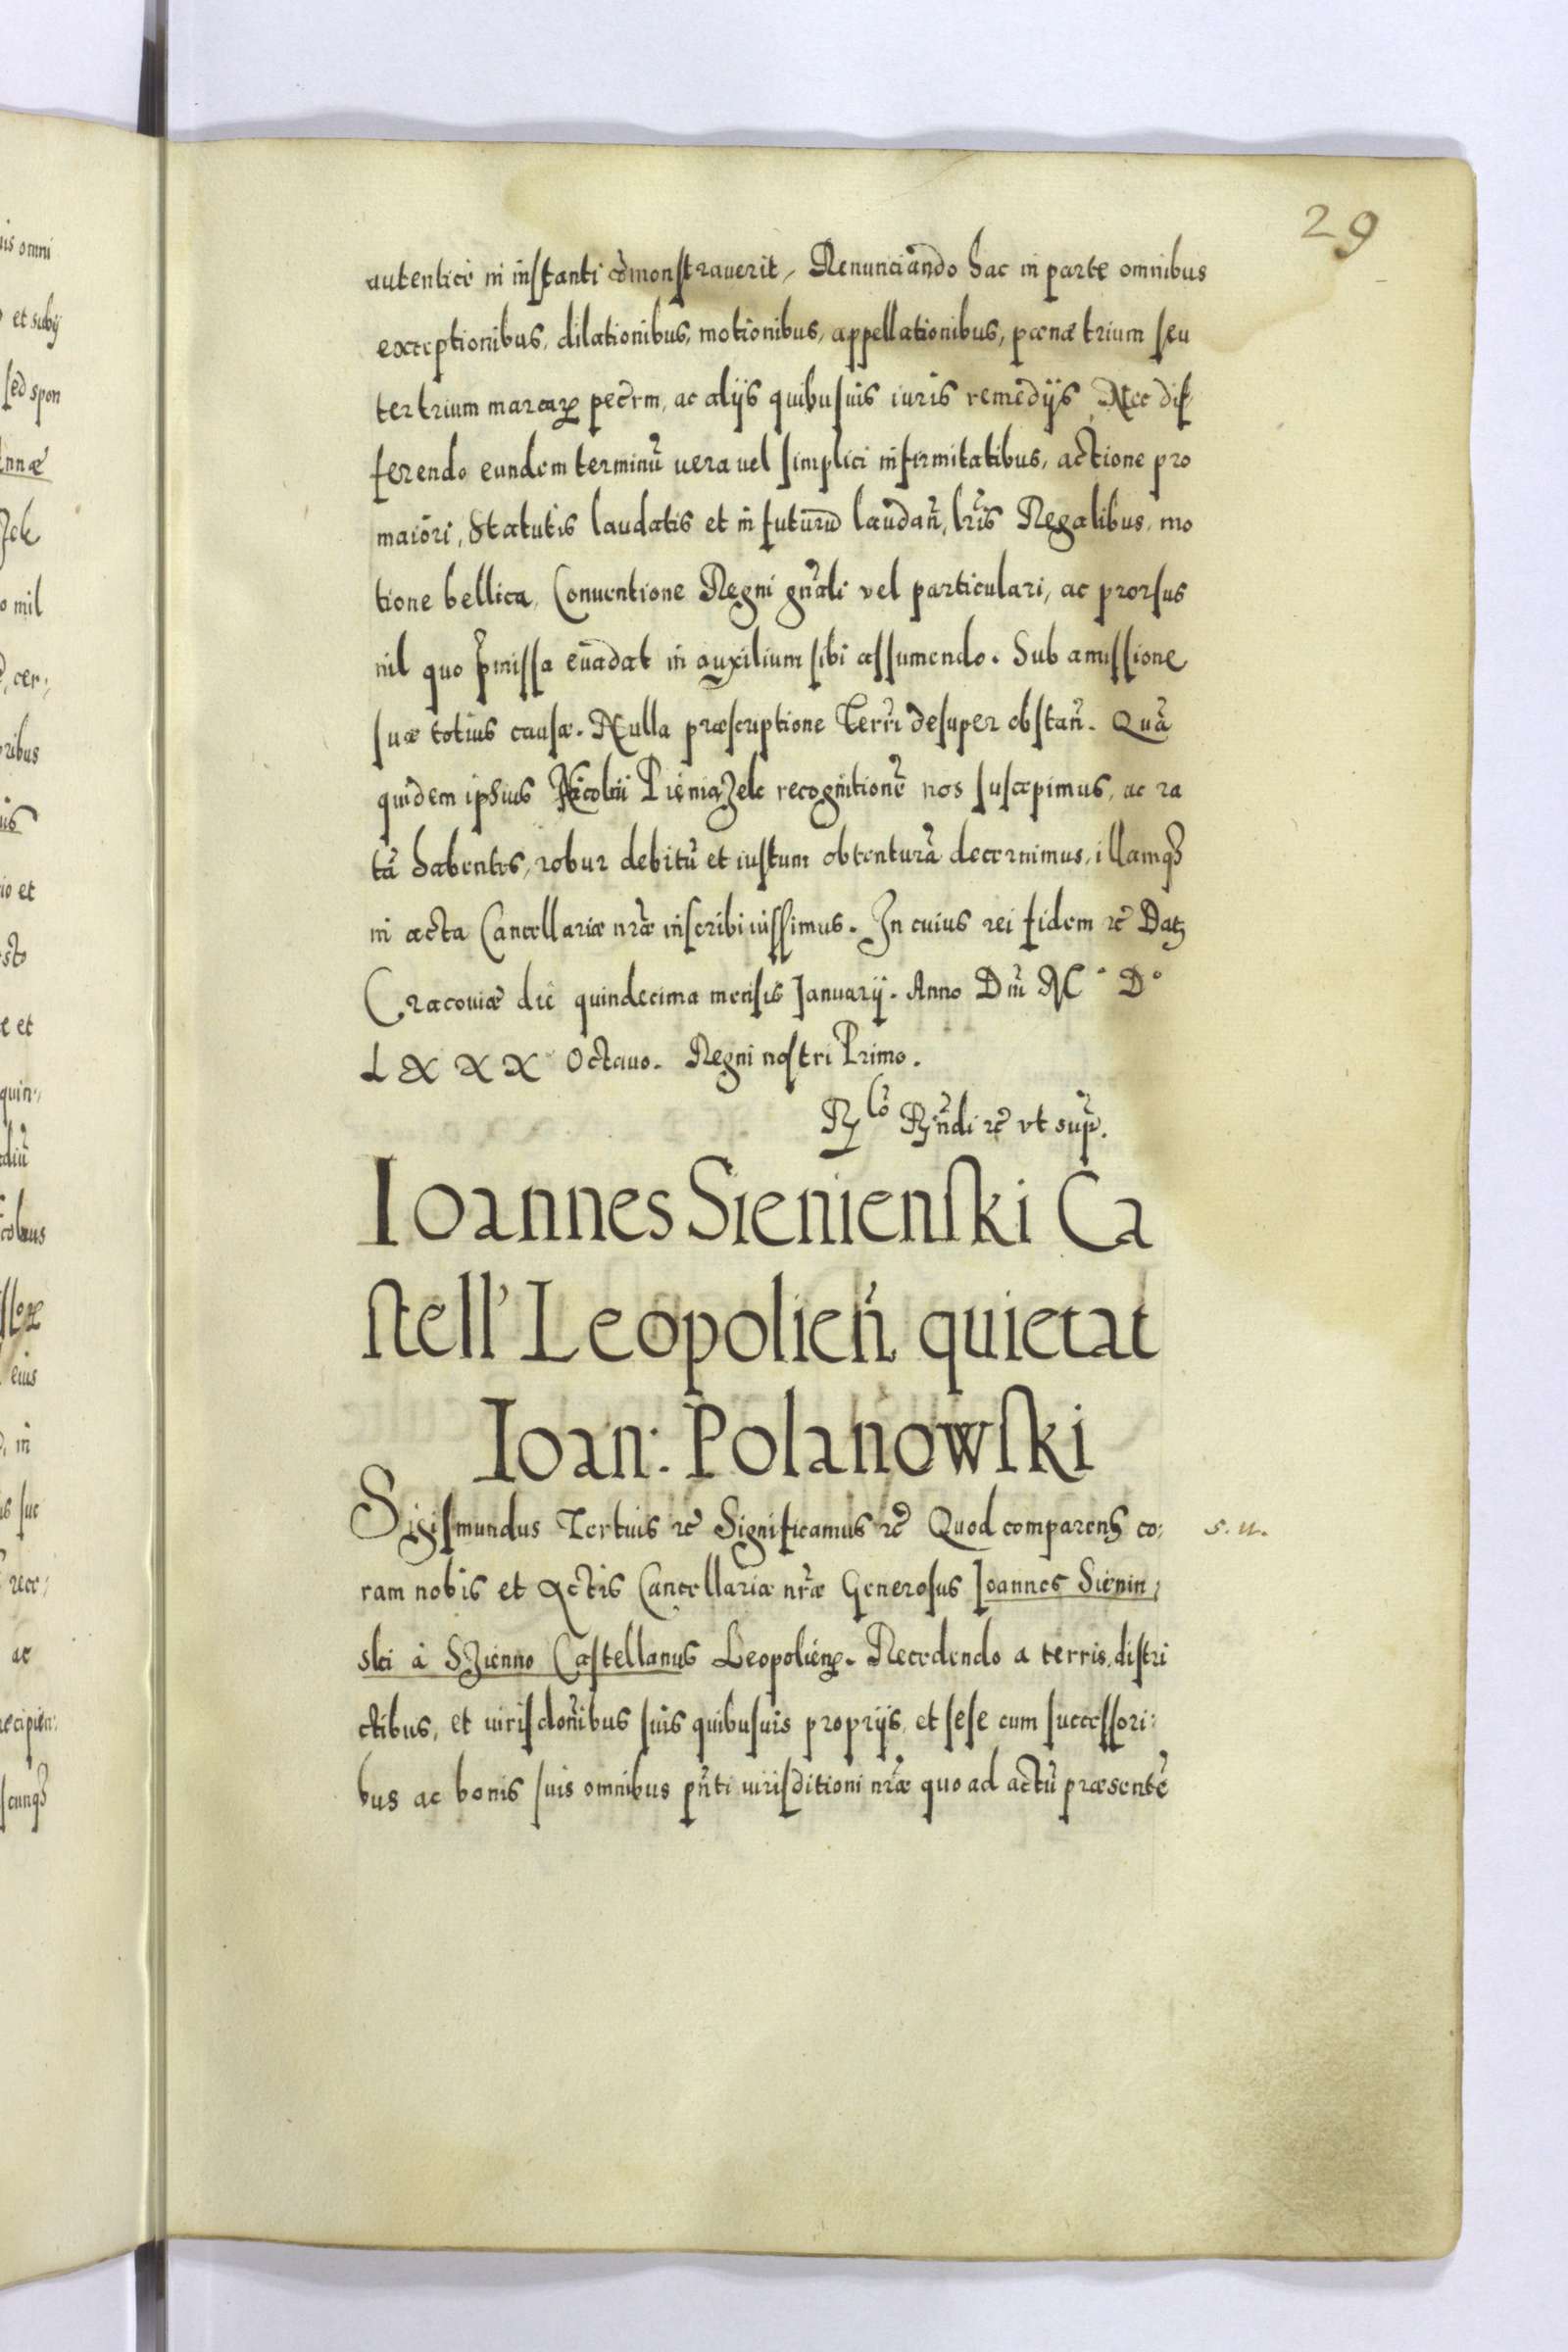 29
autentice in instanti cōmonstrauerit, Renunciando hac in parte omnibus
exceptionibus, dilationibus, motionibus, appellationibus, pœnæ trium seu
ter trium marcarꝝ pecrm, ac alijs quibusuis iuris remedijs Nec dif
ferendo eundem terminũ uera uel simplici infirmitatibus, actione pro
maiori, Statutis laudatis et in futurũ laudan̄, lr̃is Regalibus, mo
tione bellica, Conuentione Regni gnãli vel particulari, ac prorsus
nil quo p̃missa euadat in auxilium sibi assumendo. Sub amissione
suæ totius causæ. Nulla præscriptione Terrĩ desuper obstañ. Quã
quidem ipsius Nicolai Pieniązek recognitionẽ nos suscepimus, ac ra
tã habentes, robur debitũ et iustum obtenturã decernimus, illamqꝫ
in acta Cancellariæ nr̃æ inscribi iussimus. In cuius rei fidem ꝛc̃ Datꝫ
Cracouiæ die quindecima mensis Januarij. Anno Dnĩ M° D°
LXXX Octauo. Regni nostri Primo.
ꝛc̃ vt sup̃.
Ioannes Sienienski Ca
stell' Leopolień quietat
Ioan: Polanowski
Sigismundus Tertuis ꝛc̃ Significamus ꝛc̃ Quod comparens co:
s. u.
ram nobis et Actis Cancellariæ nr̃æ Generosus Joannes Sienin,
ski à Szienno Castellanus Leopolienꝭ. Recedendo a terris, distri
ctibus, et iurisdonĩbus suis quibusuis proprijs, et sese cum successori:
bus ac bonis suis omnibus pñti iurisditioni nr̃æ quo ad actũ præsentẽ